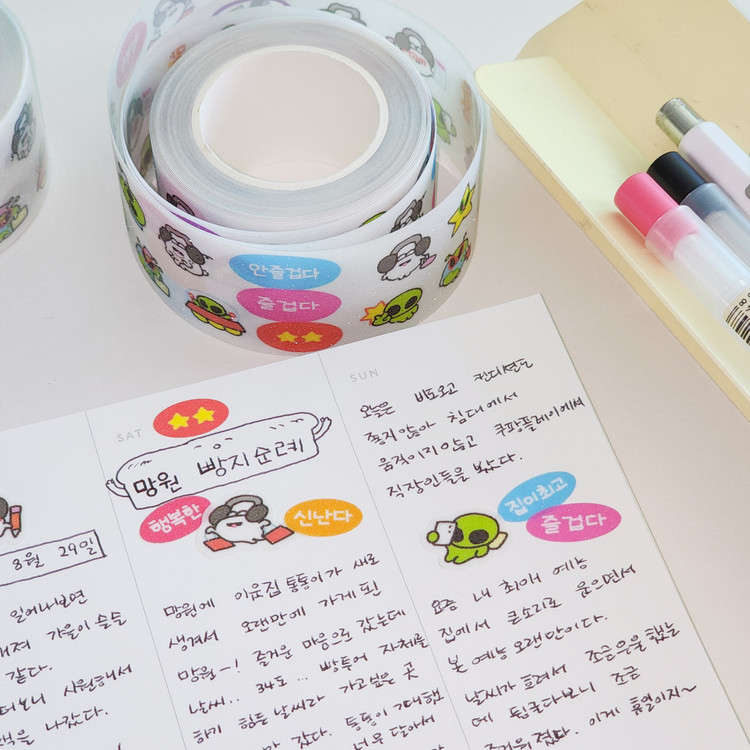 안즐겁다
즐겁다
SAT
망원 빵지순례
행복한
신난다
망원에 이웃집 통통이가 새로
생겨서 오랜만에 가게 된
망원~! 즐거운 마음으로 갔는데
날씨.. 34도 ... 빵투어 자체를
하기 힘든 날씨라 가고싶은 곳
갔다. 통통이 기대했
너무 달아서
SUN
오늘은 비도오고 컨디션도
좋지않아 침대에서
움직이지않고 쿠팡플레이에서
직장인들을 봤다.
집이최고
즐겁다
요즘 내 최애 예능
집에서 큰소리로 웃으면서
본 예능 오랜만이다.
날씨가 흐려서 조금은 우울했는
데 뒹굴다보니 조금
즐거워졌다. 이게 휴일이지~
8월 29일
일어나보면
가을이 슬슬
같다.
시원해서
책을 나갔다.